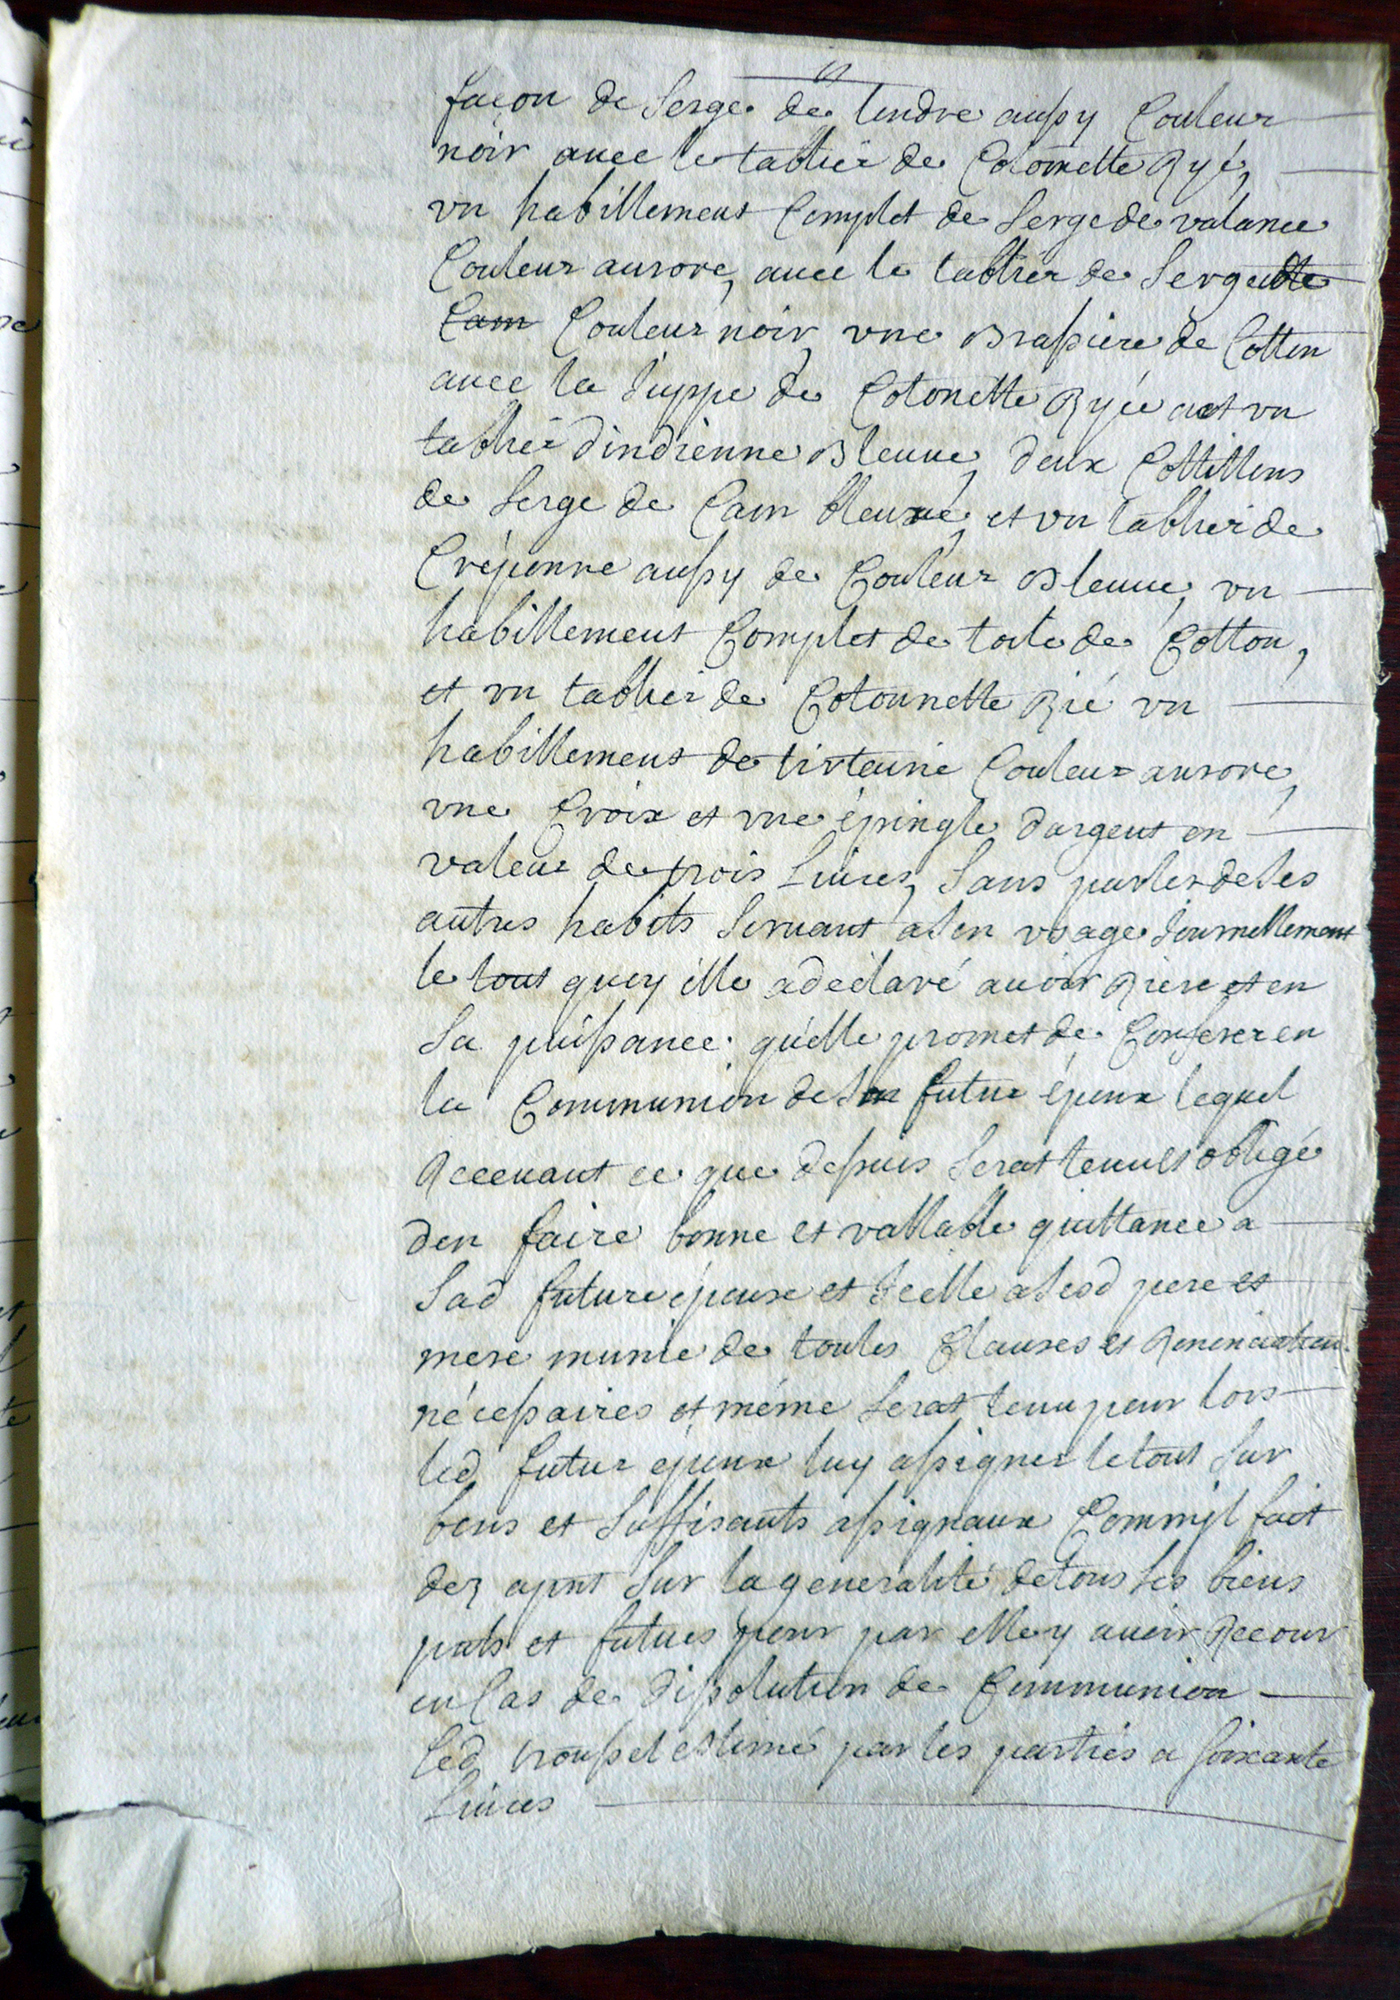 façon de Serge de londre aussy Couleur
noir avec le tablier de Cotonnette Ryé,
vn habillement Complet de Serge de valance
Couleur aurore, avec le tablier de Serge de
Cam Couleur noir, vne Brassiere de Cotton
avec la Juppe de Cotonette Ryée et vn
tablier dindienne Bleuue, deux Cottillons
de Serge de Cam bleuue, et vn tablier de
Créponne aussy de Couleur Bleuue, vn
habillement Complet de toile de Cotton,
et vn tablier de Cotonnette Rié vn
habillement de tirtaine Couleur aurore,
vne Croix et vne épingle dargent en
valeur de trois Liures, Sans parler de Ses
autres habits Seruant a Son vsage Journellement
le tout quoy elle a déclaré auoir Riere et en
Sa puissance quelle promet de Conferer en
la Communion de Son futur époux lequel
Receuant ce que dessus Serat tenu et obligé
den faire bonne et vallable quittance a
Sad future épouse et Icelle a Sesd pere et
mere munie de toutes Clauses et Renonciation
nécessaires et méme Serat tenu pour lors
led futur époux luy assigner le tout Sur
bons et Suffisants assignaux Comm'jl fait
dez apnt Sur la generalité de tous Ses biens
pnts et futurs pour par elle y auoir Recour
en Cas de dissolution de Communion
Led troussel estimé par les parties a soixante
Liures